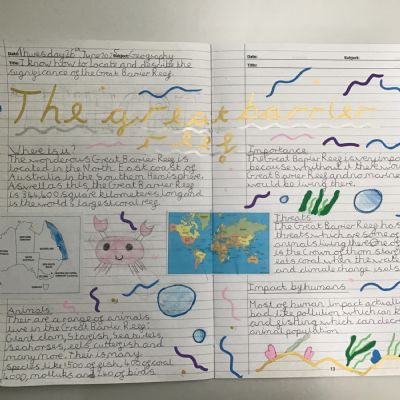 Date: Thursday 26th June 2025 Subject: Geography
Title: I know how to locate and describe the
significance of the Great Barrier Reef.
The great barrier
reef
Where is it?
The wonderous Great Barrier Reef is
located in the North East coast of
Australia in the Southern Hemisphere.
As well as this, the Great Barrier Reef
is 344,400 square kilometers long and
is the world's largest coral reef.
Animals
Their are a range of animals
live in the Great Barrier Reef:
Giant clam, Starfish, sea turtles,
seahorses, eels, cuttlefish and
many more. Their is many
species like 1500 of fish, 400 of coral
4000, mollusks and 240 of birds.
Date: Subject:
Title:
Importance
The Great Barrier Reef is very impor
because without it there wou
Great Barrier Reef and no marine
would be living there.
Threats
The Great Barrier Reef has
threats which are some of
animals living there. One of
is the Crown of thorn starf
eats coral when the wat
and climate change is ots
Impact by humans
Most of human impact actually
bad like pollution which can k
and fishing which can decr
animal population.
13